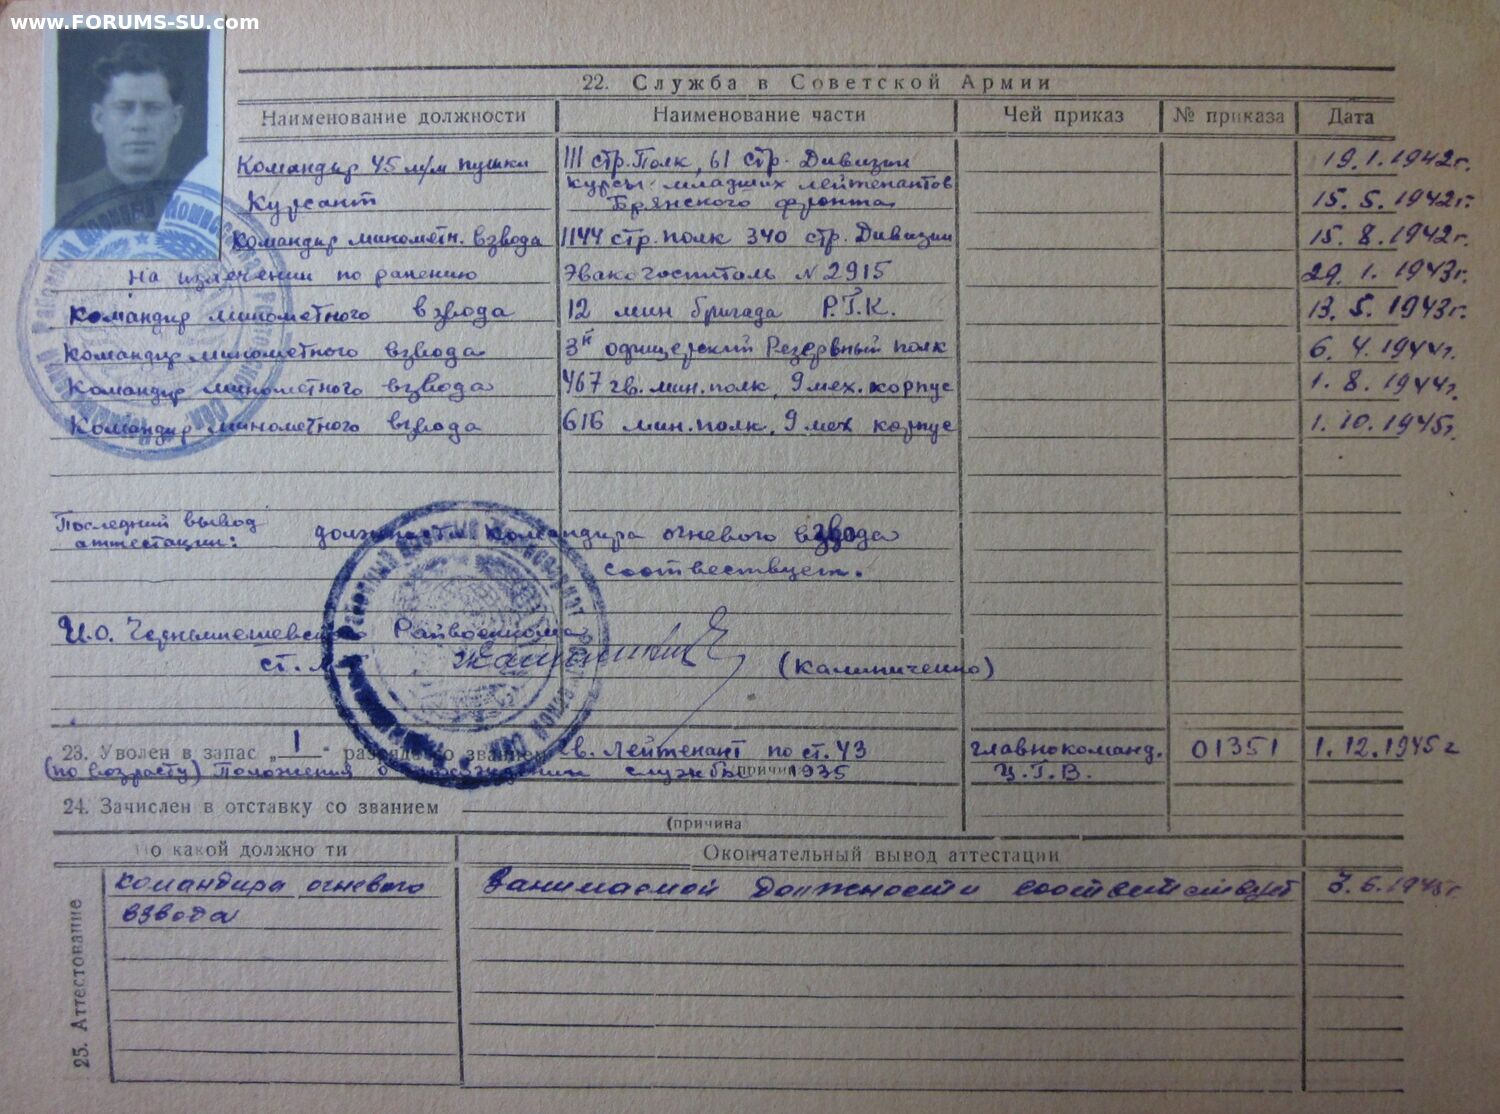 www.FORUMS-SU.com
22. Служба в Советской Армии
Наименование должности Наименование части Чей приказ № приказа Дата
Командир 45 м/м пушки 111 стр. Полк, 61 стр. Дивизии 19.1.1942г.
Курсант Курсы младших лейтенантов Брянского фронта 15.5.1942г.
Командир минометн. взвода 1144 стр. полк 340 стр. Дивизии 15.8.1942г.
На излечении по ранению Эвакогоспиталь №2915 29.1.1943г.
Командир минометного взвода 12 мин бригада Р.Г.К. 13.5.1943г.
Командир минометного взвода 3й офицерский Резервный полк 6.4.1944г.
Командир минометного взвода 467 гв. мин. полк, 9 мех. корпус 1.8.1944г.
Командир минометного взвода 616 мин. полк, 9 мех корпус 1.10.1945г.
Последний вывод
аттестации: должности командира огневого взвода
соответствует.
И.О. Райвоенкома
ст. (Калиниченко)
23. Уволен в запас „1" разряда со званием гв. Лейтенант по ст. 43 главнокоманд. 01351 1.12.1945г
(по возрасту) Положения о службы причина 1935 Ц.Г.В.
24. Зачислен в отставку со званием
(причина
По какой должно ти Окончательный вывод аттестации
25. Аттестование
командира огневого Занимаемой должности соответствует 3.6.1945г.
взвода